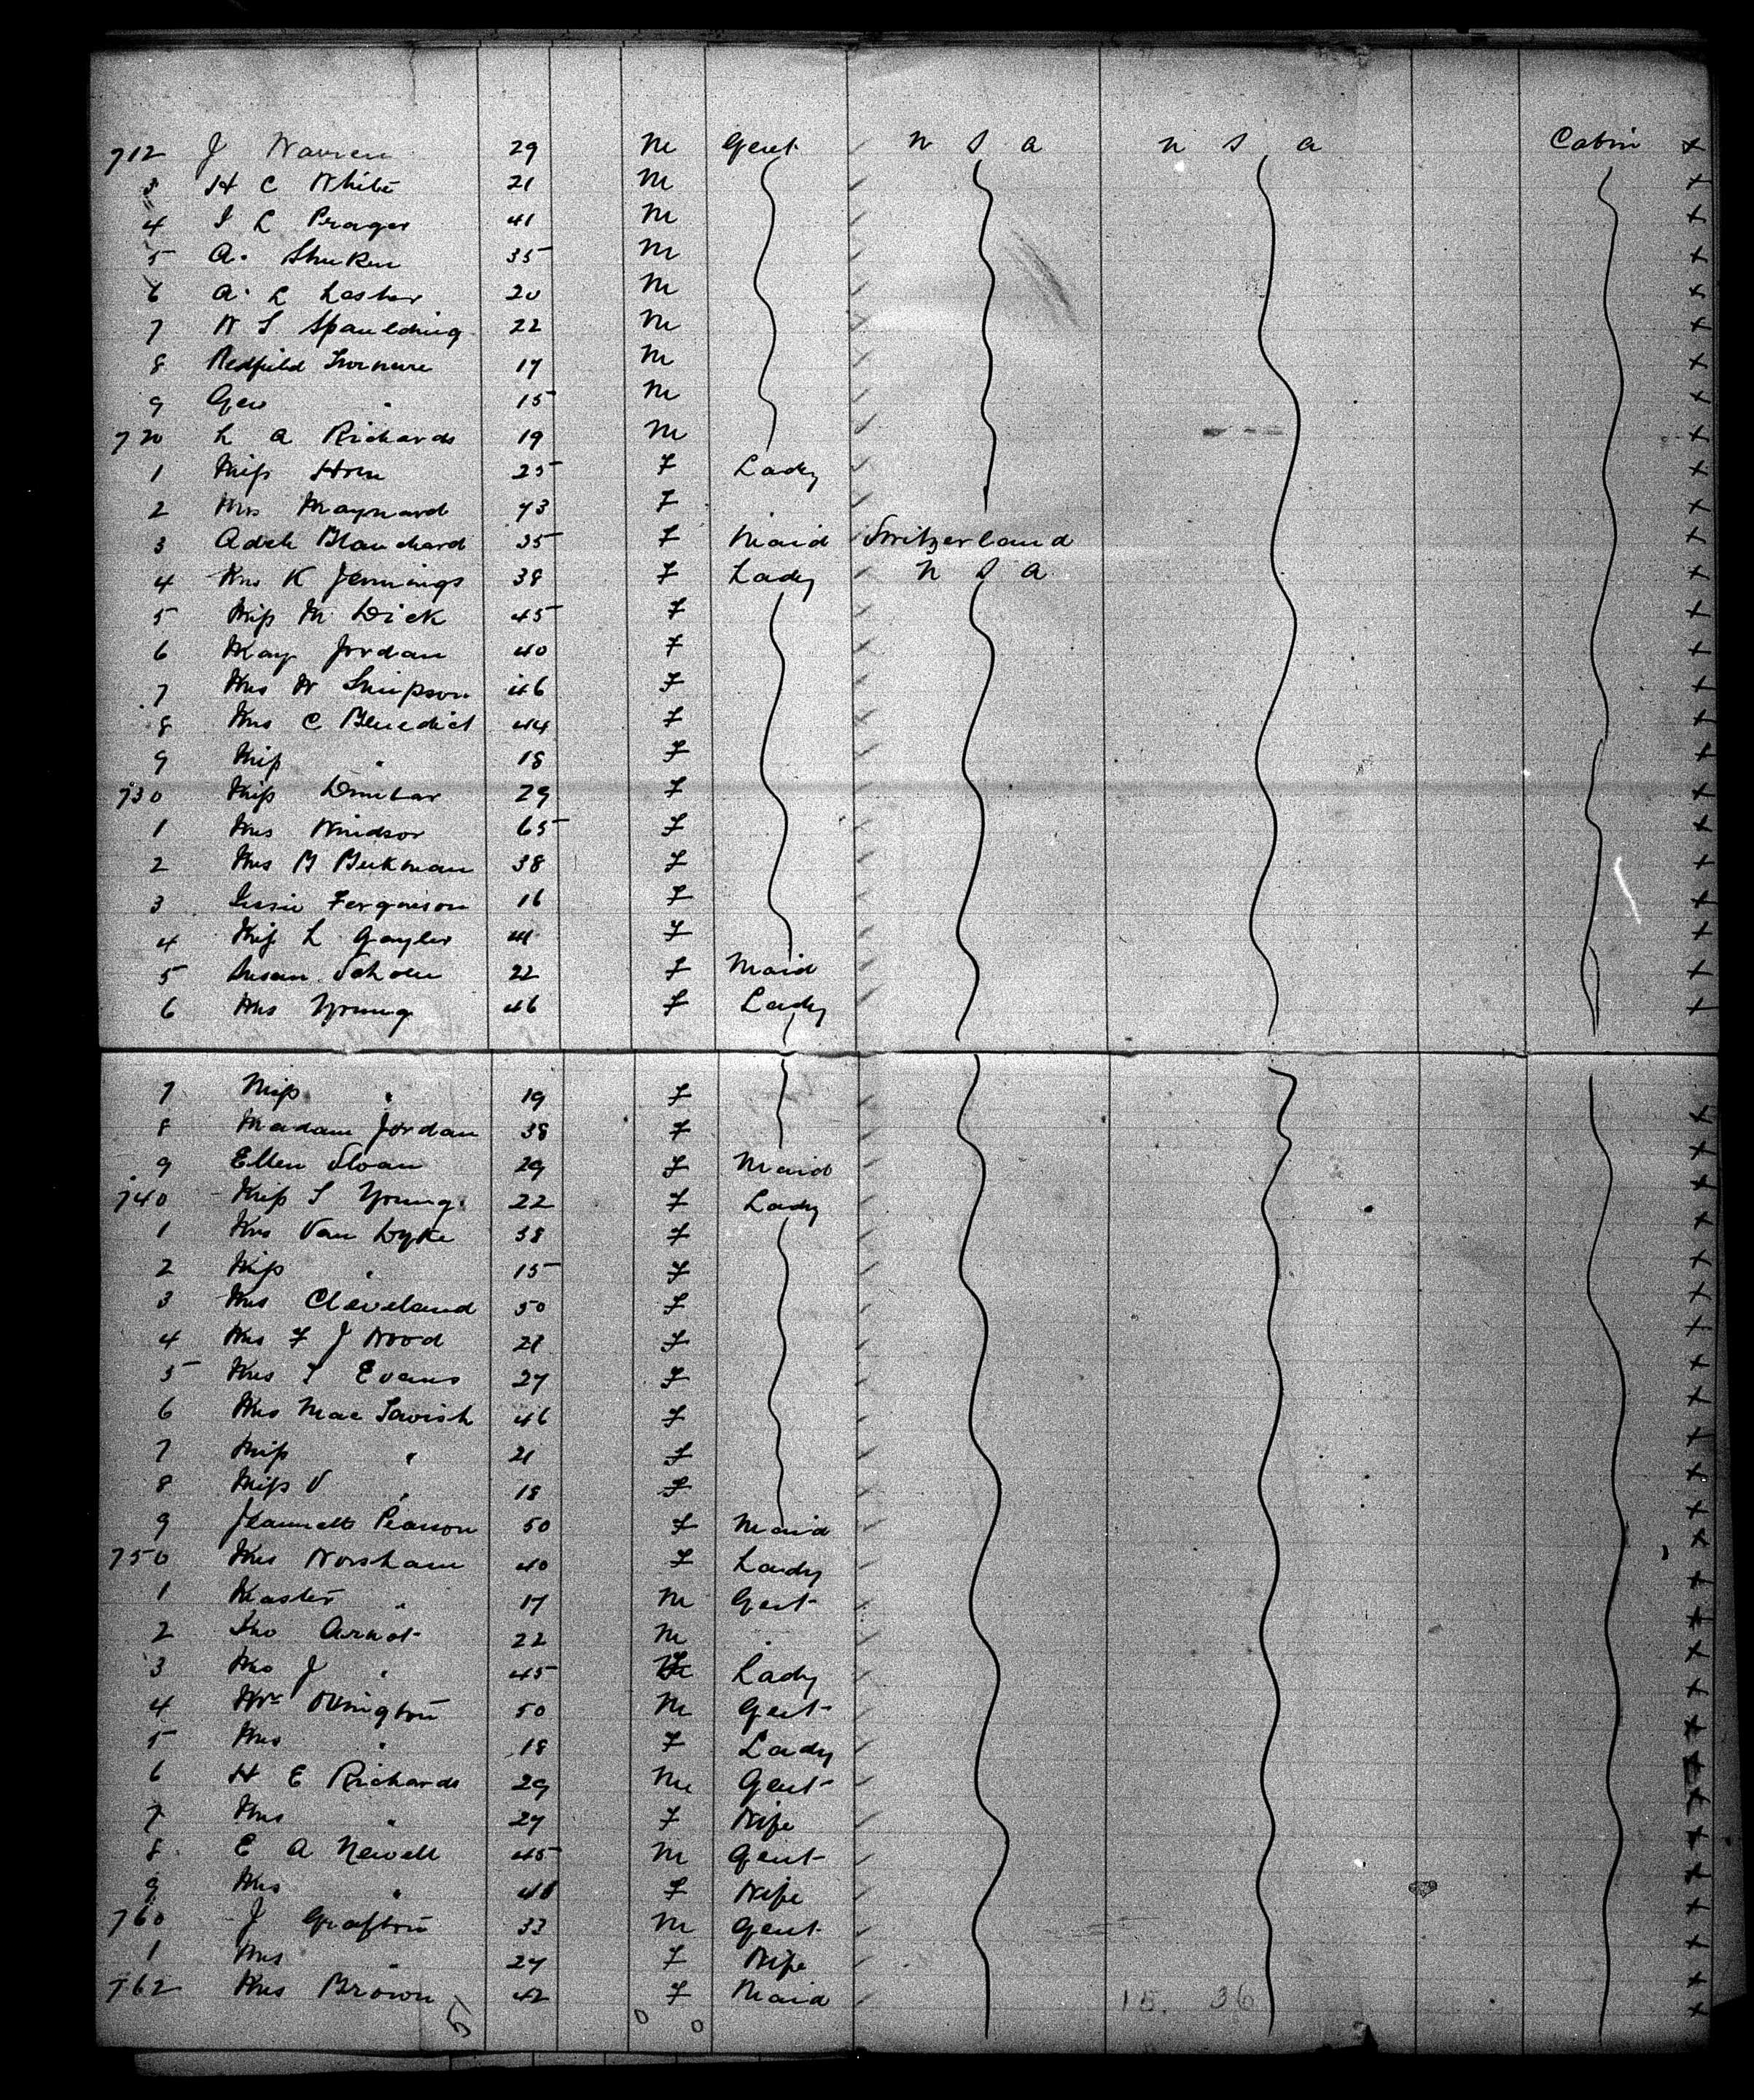 712 J Warren 29 M Gent U S A U S A Cabin X
3 H C White 21 M X
4 I L Prager 41 M X
5 A. 35 M X
6 A. L Lesher 20 M X
7 W S Spaulding 22 M X
8 Redfield 17 M X
9 Geo " 15 M X
720 L A Richards 19 M X
1 Miss Horn 25 F Lady X
2 Mrs Maynard 43 F X
3 Adele Blanchard 35 F Maid Switzerland X
4 Mrs K Jennings 38 F Lady U S A X
5 Miss M Dick 45 F X
6 May Jordan 40 F X
7 Mrs W Simpson 46 F X
8 Mrs C Benedict 44 F X
9 Miss " 18 F X
730 Miss Dunbar 29 F X
1 Mrs Windsor 65 F X
2 Mrs B Beekman 38 F X
3 Ferguison 16 F X
4 Miss L Gayler 41 F X
5 Susan 22 F Maid X
6 Mrs Young 46 F Lady X
7 Miss " 19 F X
8 Madam Jordan 38 F X
9 Ellen Sloan 29 F Maid X
740 Miss S Young 22 F Lady X
1 Mrs Van Dyke 38 F X
2 Miss " 15 F X
3 Mrs Cleveland 50 F X
4 Mrs F J Wood 28 F X
5 Mrs T Evans 27 F X
6 Mrs Mac Tavish 46 F X
7 Miss " 21 F X
8 Miss V " 18 F X
9 Jeannette Pearson 50 F Maid X
750 Mrs Worsham 40 F Lady X
1 Master " 17 M Gent X
2 Arnot 22 M " X
3 Mrs J " 45 F Lady X
4 Mr Ovington 50 M Gent X
5 Mrs " 18 F Lady X
6 H E Richards 29 M Gent X
7 Mrs " 27 F Wife X
8 E A Newell 45 M Gent X
9 Mrs " 48 F Wife X
760 J Grafton 33 M Gent X
1 Mrs " 27 F Wife X
762 Mrs Brown 42 F Maid X
51 0 0 15. 36